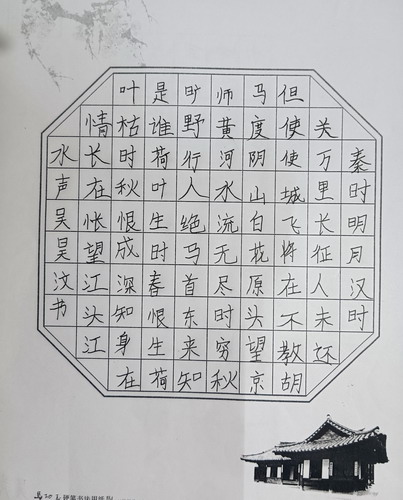 秦时明月汉时
关万里长征人未还
但使使城飞将在不教胡
马度阴山白花原头望京
师黄河水流无尽时穷秋
旷野行人绝马首东来知
是谁荷叶生时春恨生荷
叶枯时秋恨成深知身在
情长在怅望江头江
水声吴昊汶书
硬笔书法用纸